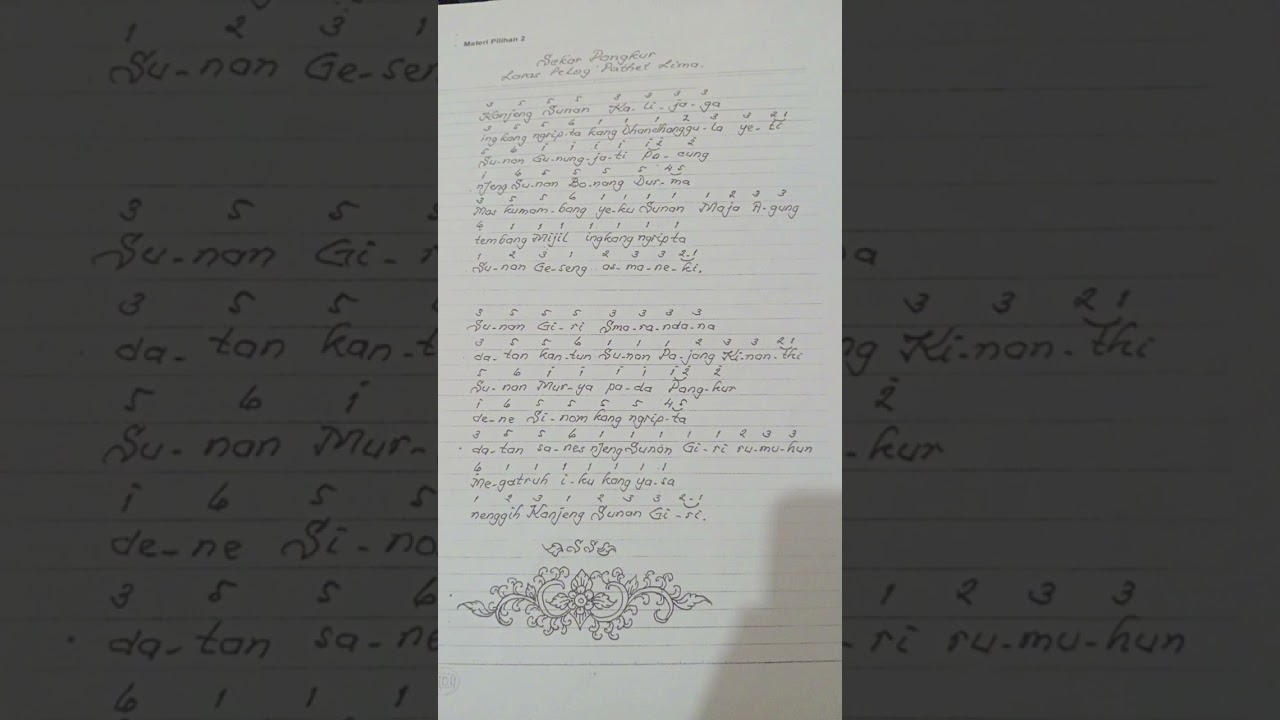 Materi Pilihan 2
Sekar Pangkur
Laras Pelog Pathet Lima.
3 5 5 5 3 3 3 3
Kanjeng Sunan Ka-li-ja-ga
3 5 5 6 1 1 1 2 3 3 2 1
ingkang ngrip-ta kang Dhandhanggu-la ye-ti
5 6 i i i i i 2̇ 2̇
Su-nan Gu-nung-ja-ti Po-cung
i 6 5 5 5 5 4 5
njeng Su-nan Bo-nang Dur-ma
3 5 5 6 1 1 1 1 1 2 3 3
Mas kumam-bang ye-ku Sunan Maja A-gung
6 1 1 1 1 1 1 1
tembang Mijil ingkang ngripta
1 2 3 1 2 3 3 2-1
Su-nan Ge-seng as-ma-ne-ki.
3 5 5 5 3 3 3 3
Su-nan Gi-ri Sma-ra-nda-na
3 5 5 6 1 1 1 2 3 3 2 1
da-tan kan-tun Su-nan Pa-jang Ki-nan-thi
5 6 i i i i i 2̇ 2̇
Su-nan Mur-ya pa-da Pang-kur
i 6 5 5 5 5 4 5
de-ne Si-nom kang ngrip-ta
3 5 5 6 1 1 1 1 1 2 3 3
da-tan sa-nes njeng Sunan Gi-ri ru-mu-hun
6 1 1 1 1 1 1 1
Me-gatruh i-ku kang ya-sa
1 2 3 1 2 3 3 2-1
nenggih Kanjeng Sunan Gi-ri.